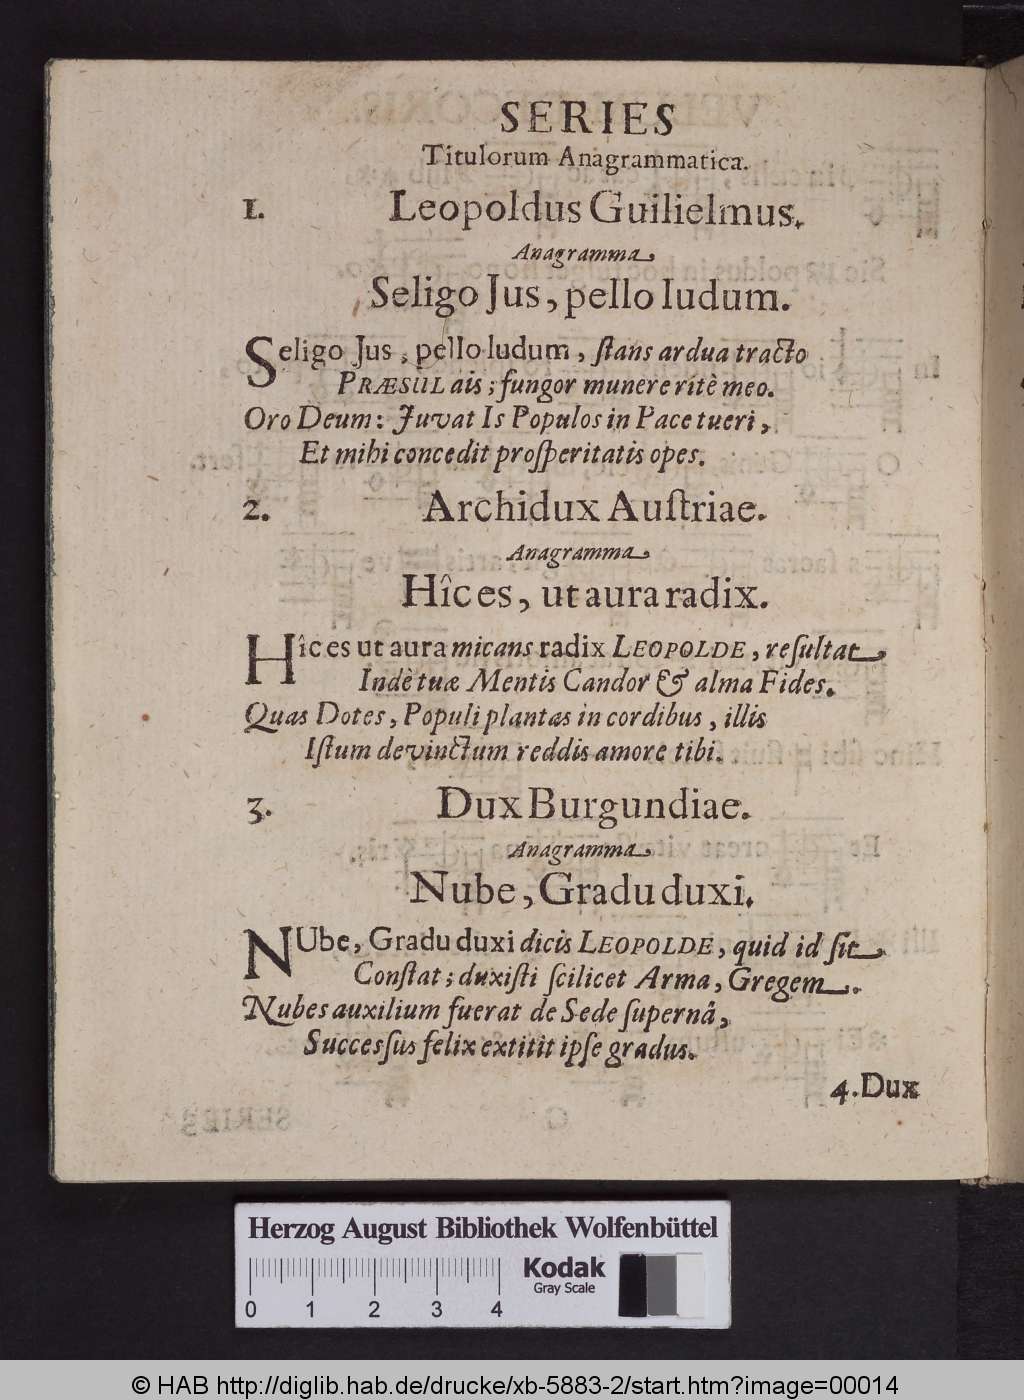 SERIES
Titulorum Anagrammatica.
1. Leopoldus Guilielmus.
Anagramma
Seligo Jus, pello ludum.
Seligo Jus, pello ludum, ſtans ardua tracto
PRÆSUL ais; fungor munere ritè meo.
Oro Deum: Juvat Is Populos in Pace tueri,
Et mihi concedit proſperitatis opes.
2. Archidux Auſtriae.
Anagramma
Hîc es, ut aura radix.
Hîc es ut aura micans radix LEOPOLDE, reſultat
Indè tuæ Mentis Candor & alma Fides.
Quas Dotes, Populi plantas in cordibus, illis
Iſtum devinctum reddis amore tibi.
3. Dux Burgundiae.
Anagramma
Nube, Gradu duxi.
NUbe, Gradu duxi dicis LEOPOLDE, quid id ſit
Conſtat; duxiſti ſcilicet Arma, Gregem.
Nubes auxilium fuerat de Sede ſupernâ,
Succesſus felix extitit ipſe gradus.
4. Dux
Herzog August Bibliothek Wolfenbüttel
0 1 2 3 4
Kodak
Gray Scale
© HAB http://diglib.hab.de/drucke/xb-5883-2/start.htm?image=00014